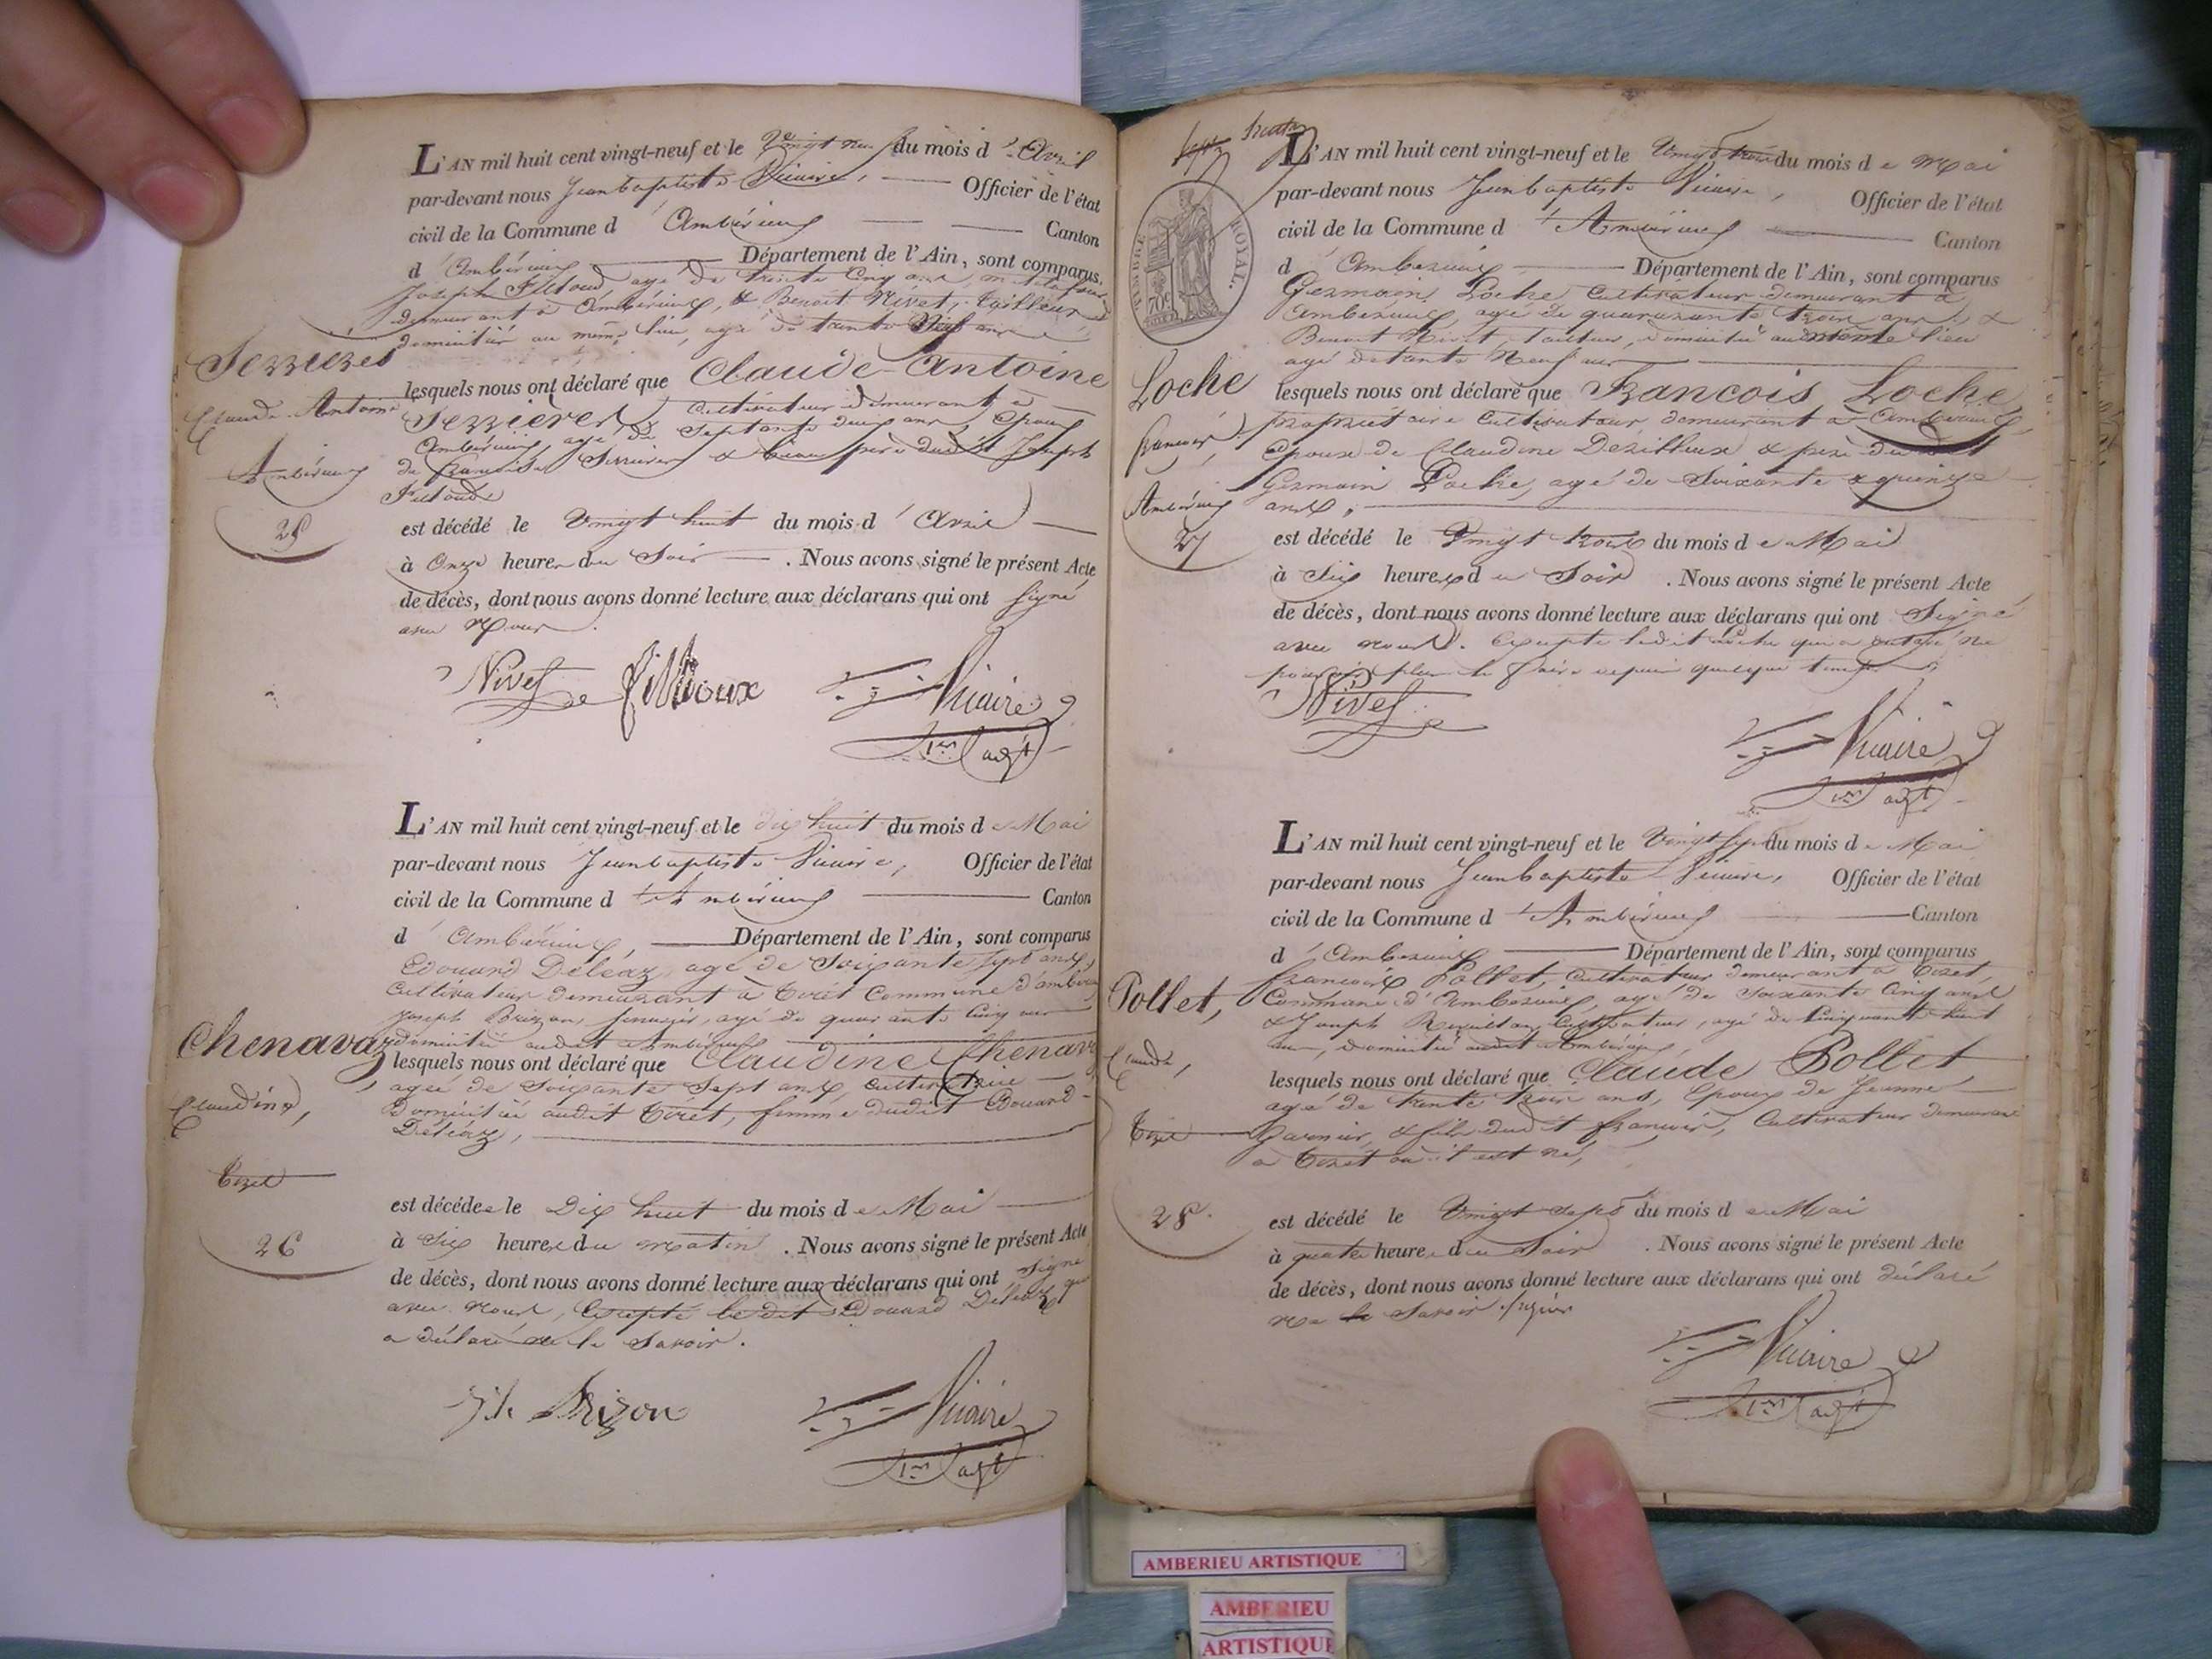 L'AN mil huit cent vingt-neuf et le Vingt neuf du mois d'Avril
par-devant nous Jean baptiste Vicaire, Officier de l'état
civil de la Commune d'Ambérieux Canton
d'Ambérieux Département de l'Ain, sont comparus
Joseph agé de trente Cinq ans,
demeurant a Ambérieux, & Benoit Nivet, tailleur
domicilié au même lieu, agé de trente Neuf ans
Serrieres
lesquels nous ont déclaré que Claude Antoine
Claude Antoine
Serrieres, Cultivateur demeurant a
Ambérieux, agé de Septante deux ans, Epoux
Ambérieux
de françoise & beau père dudit Joseph
25
est décédé le Vingt huit du mois d'Avril
à Onze heure du Soir . Nous avons signé le présent Acte
de décès, dont nous avons donné lecture aux déclarans qui ont signé
avec Nous.
Nivet fillioux Vicaire
1er adjt
L'AN mil huit cent vingt-neuf et le dix huit du mois de Mai
par-devant nous Jean baptiste Vicaire, Officier de l'état
civil de la Commune d'Ambérieux Canton
d'Ambérieux, Département de l'Ain, sont comparus
Edouard Déléaz, agé de Soixante sept ans,
Cultivateur demeurant à Tiret Commune d'ambérieux
Joseph Brizon, agé de quarante Cinq ans
domicilié audit Ambérieux
Chenavaz
lesquels nous ont déclaré que Claudine Chenavaz
agée de Soixante Sept ans, Cultivatrice
Claudine,
Domiciliée audit Tiret, femme dudit Edouard
Déléaz,
Tiret
est décédée le Dix huit du mois de Mai
26
à Six heures du matin . Nous avons signé le présent Acte
de décès, dont nous avons donné lecture aux déclarans qui ont signé
avec nous, Excepté ledit Edouard Déléaz qui
a déclaré ne le Savoir.
Brizon Vicaire
1er adjt
L'AN mil huit cent vingt-neuf et le Vingt trois du mois de Mai
par-devant nous Jean baptiste Vicaire, Officier de l'état
civil de la Commune d'Ambérieux Canton
d'Ambérieux Département de l'Ain, sont comparus
TIMBRE ROYAL.
70c
Germain Loche, Cultivateur demeurant à
Ambérieux, agé de quarante trois ans, &
Benoit Nivet, tailleur, domicilié au même lieu
agé de trente Neuf ans
Loche
lesquels nous ont déclaré que François Loche
propriétaire Cultivateur, demeurant à Ambérieux,
françois
Epoux de Claudine & père dudit
Germain Loche, agé de Soixante & quinze
Ambérieux
ans,
27
est décédé le Vingt trois du mois de Mai
à Six heures du Soir . Nous avons signé le présent Acte
de décès, dont nous avons donné lecture aux déclarans qui ont Signé
avec nous. Excepté ledit Loche qui a ne
pouvoir plus le faire depuis quelque temps
Nivet
Vicaire
1er adjt
L'AN mil huit cent vingt-neuf et le Vingt sept du mois de Mai
par-devant nous Jean baptiste Vicaire, Officier de l'état
civil de la Commune d'Ambérieux Canton
d'Ambérieux Département de l'Ain, sont comparus
françois Pollet, Cultivateur demeurant a Tiret,
Pollet,
Commune d'Ambérieux, agé de Soixante Cinq ans
& Joseph Cultivateur, agé de Cinquante huit
ans, domicilié audit Ambérieux
Claude,
lesquels nous ont déclaré que Claude Pollet
agé de trente trois ans, Epoux de Jeanne
Tiret
Garnier, & fils dudit françois, Cultivateur demeurant
a Tiret où il est né,
28.
est décédé le Vingt Sept du mois de Mai
à quatre heures du Soir . Nous avons signé le présent Acte
de décès, dont nous avons donné lecture aux déclarans qui ont déclaré
ne le Savoir
Vicaire
1er adjt
AMBERIEU ARTISTIQUE
AMBERIEU
ARTISTIQUE